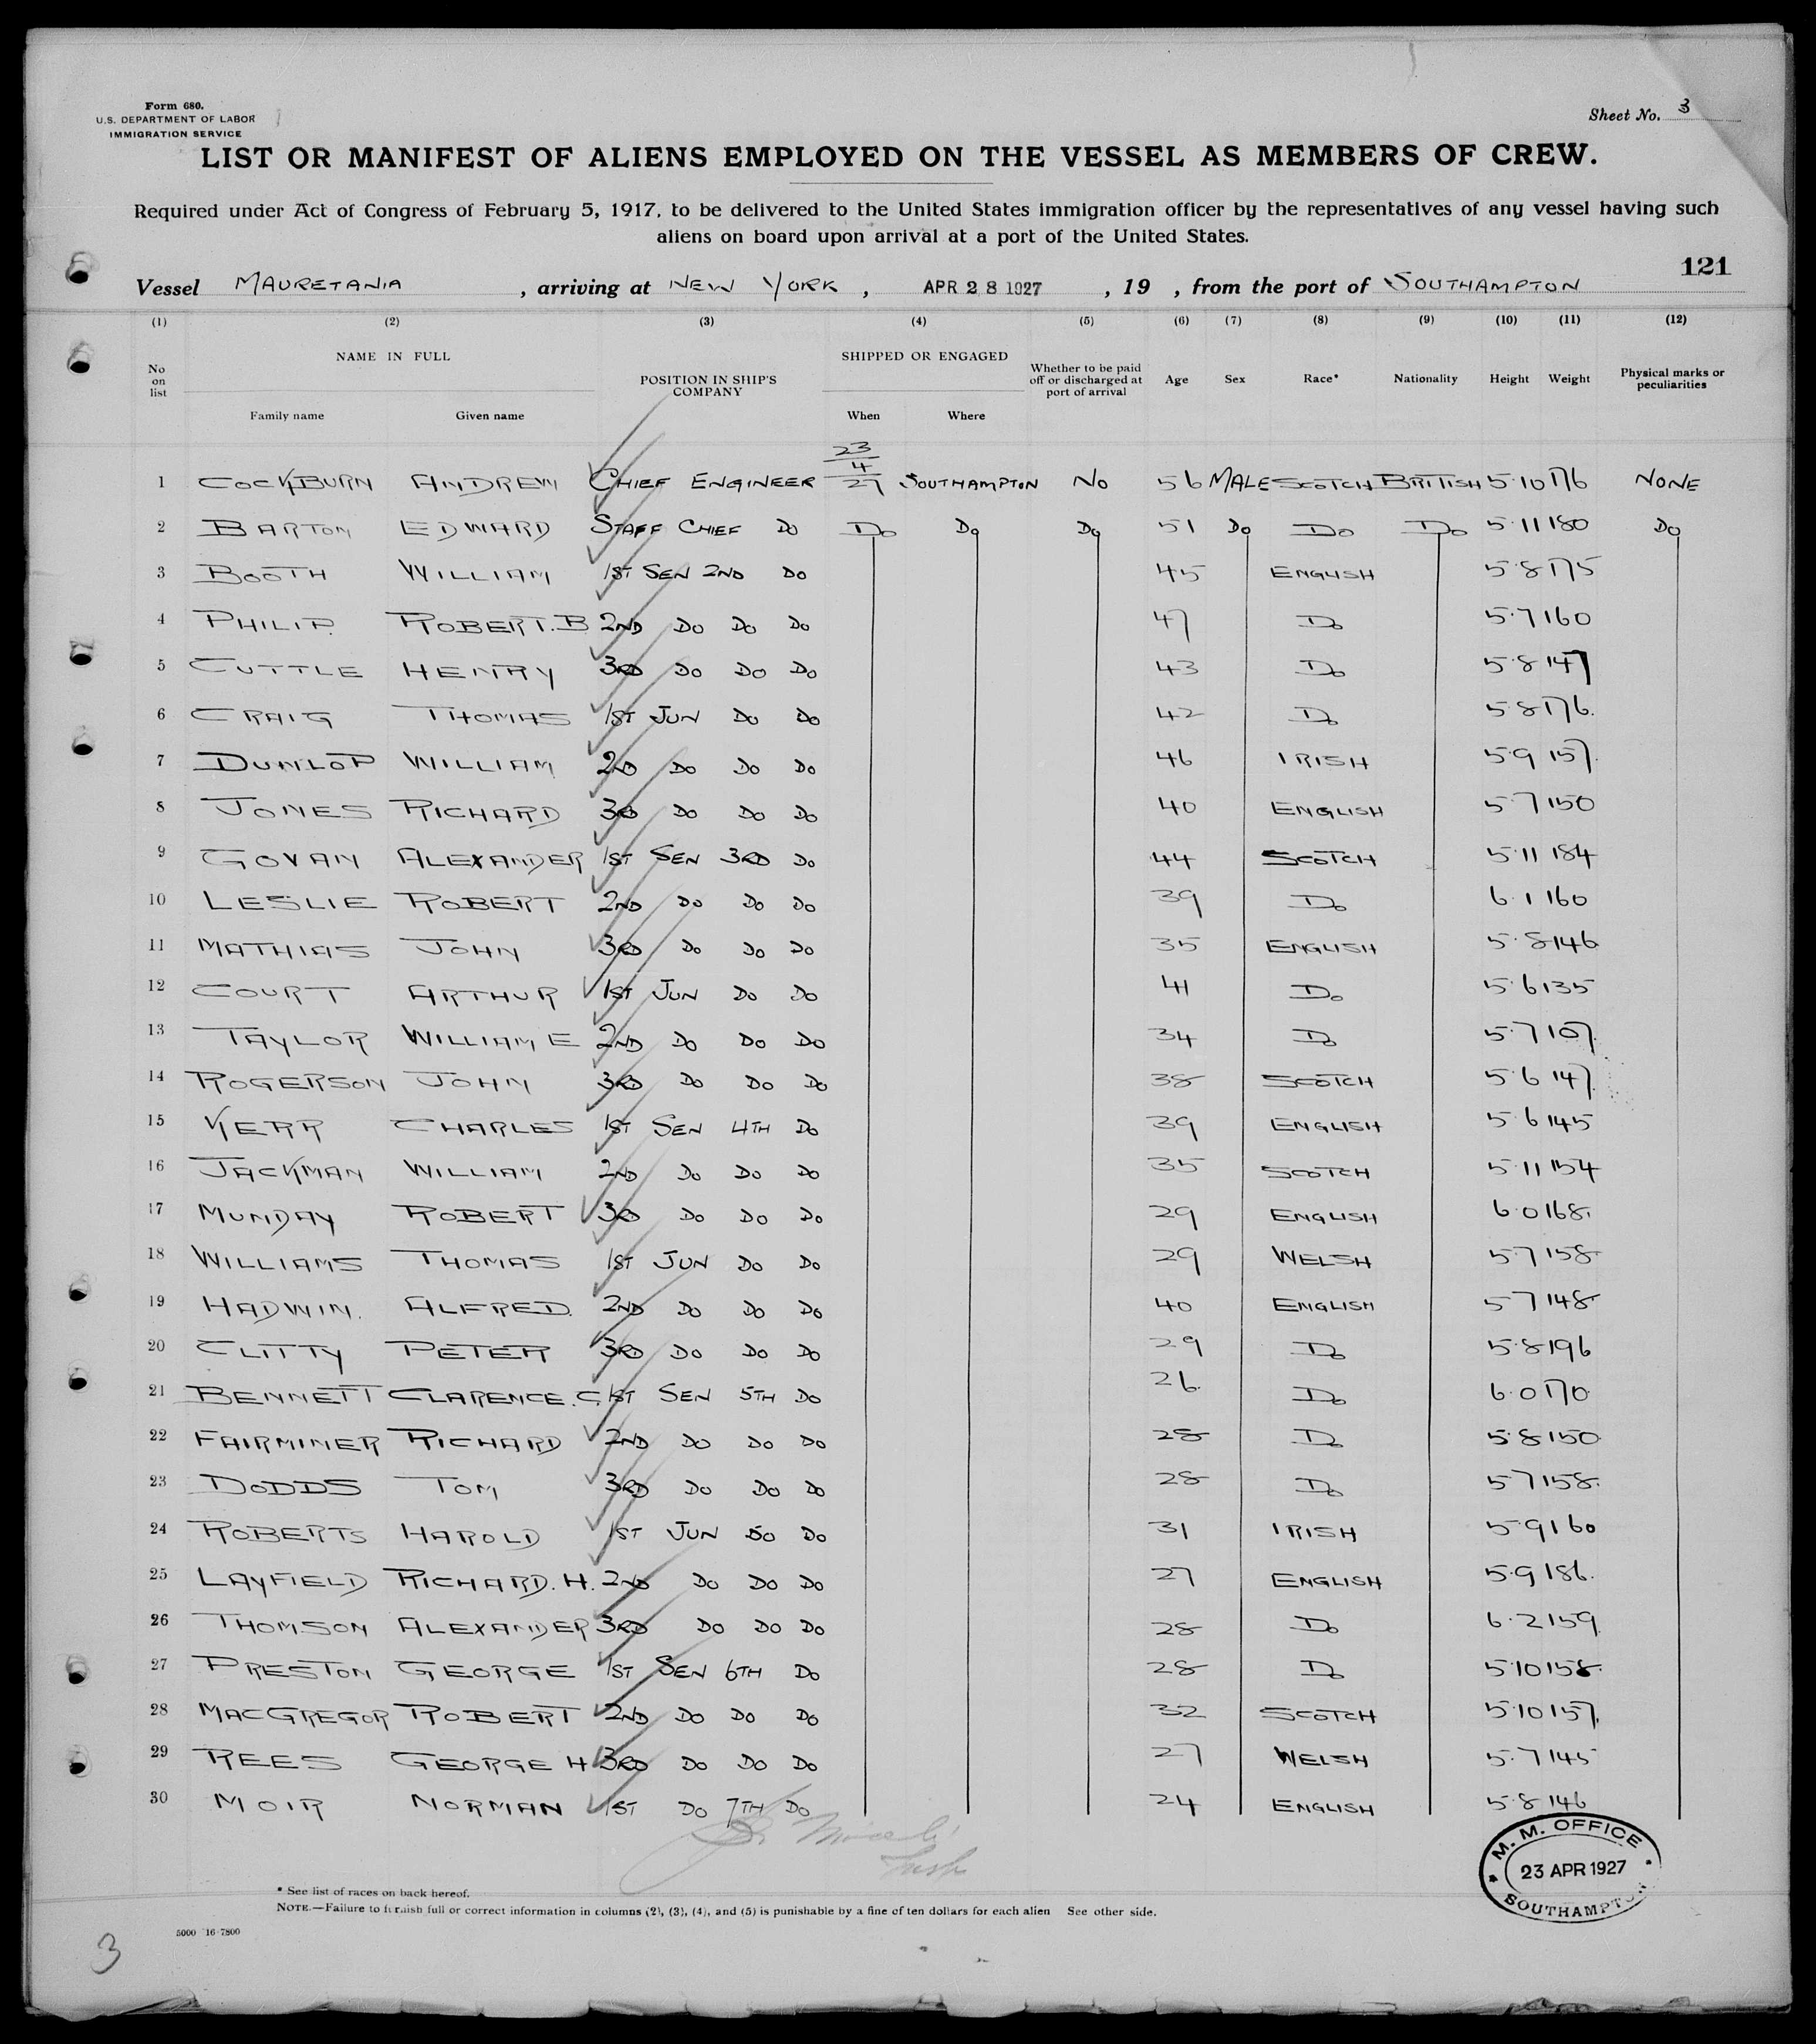 Form 680.
U.S. DEPARTMENT OF LABOR
IMMIGRATION SERVICE
Sheet No. 3
LIST OR MANIFEST OF ALIENS EMPLOYED ON THE VESSEL AS MEMBERS OF CREW.
Required under Act of Congress of February 5, 1917, to be delivered to the United States immigration officer by the representatives of any vessel having such
aliens on board upon arrival at a port of the United States.
121
Vessel MAURETANIA , arriving at NEW YORK , APR 28 1927 , 19 , from the port of SOUTHAMPTON
(1) (2) (3) (4) (5) (6) (7) (8) (9) (10) (11) (12)
No on list NAME IN FULL Family name Given name POSITION IN SHIP'S COMPANY SHIPPED OR ENGAGED When Where Whether to be paid off or discharged at port of arrival Age Sex Race* Nationality Height Weight Physical marks or peculiarities
1 COCKBURN ANDREW CHIEF ENGINEER 23/4/27 SOUTHAMPTON NO 56 MALE SCOTCH BRITISH 5·10 176 NONE
2 BARTON EDWARD STAFF CHIEF DO DO DO DO 51 DO DO DO 5·11 180 DO
3 BOOTH WILLIAM 1ST SEN 2ND DO 45 ENGLISH 5·8 175
4 PHILIP ROBERT.B 2ND DO DO DO 47 DO 5·7 160
5 CUTTLE HENRY 3RD DO DO DO 43 DO 5·8 147
6 CRAIG THOMAS 1ST JUN DO DO 42 DO 5·8 176.
7 DUNLOP WILLIAM 2ND DO DO DO 46 IRISH 5·9 157.
8 JONES RICHARD 3RD DO DO DO 40 ENGLISH 5·7 150
9 GOVAN ALEXANDER 1ST SEN 3RD DO 44 SCOTCH 5·11 184
10 LESLIE ROBERT 2ND DO DO DO 39 DO 6·1 160
11 MATHIAS JOHN 3RD DO DO DO 35 ENGLISH 5·8 146
12 COURT ARTHUR 1ST JUN DO DO 41 DO 5·6 135
13 TAYLOR WILLIAM E 2ND DO DO DO 34 DO 5·7 107.
14 ROGERSON JOHN 3RD DO DO DO 38 SCOTCH 5·6 147.
15 KERR CHARLES 1ST SEN 4TH DO 39 ENGLISH 5·6 145
16 JACKMAN WILLIAM 2ND DO DO DO 35 SCOTCH 5·11 154
17 MUNDAY ROBERT 3RD DO DO DO 29 ENGLISH 6·0 168.
18 WILLIAMS THOMAS 1ST JUN DO DO 29 WELSH 5·7 158
19 HADWIN. ALFRED. 2ND DO DO DO 40 ENGLISH 5·7 148
20 CLITTY PETER 3RD DO DO DO 29 DO 5·8 196
21 BENNETT CLARENCE.C. 1ST SEN 5TH DO 26. DO 6·0 170
22 FAIRMINER RICHARD 2ND DO DO DO 28 DO 5·8 150
23 DODDS TOM 3RD DO DO DO 28 DO 5·7 158.
24 ROBERTS HAROLD 1ST JUN DO DO 31 IRISH 5·9 160
25 LAYFIELD RICHARD.H. 2ND DO DO DO 27 ENGLISH 5·9 186.
26 THOMSON ALEXANDER 3RD DO DO DO 28 DO 6·2 159.
27 PRESTON GEORGE 1ST SEN 6TH DO 28 DO 5·10 158.
28 MACGREGOR ROBERT 2ND DO DO DO 32 SCOTCH 5·10 157.
29 REES GEORGE H 3RD DO DO DO 27 WELSH 5·7 145
30 MOIR NORMAN 1ST DO 7TH DO 24 ENGLISH 5·8 146
M. M. OFFICE
23 APR 1927
SOUTHAMPTON
* See list of races on back hereof.
NOTE.—Failure to furnish full or correct information in columns (2), (3), (4), and (5) is punishable by a fine of ten dollars for each alien See other side.
5000 16-7800
3